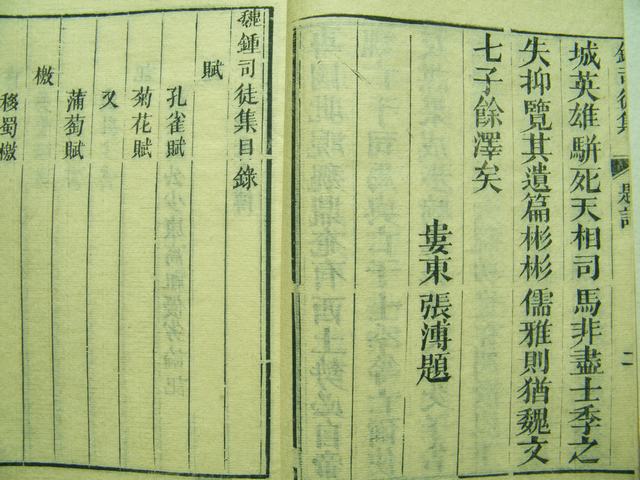 鍾司徒集
題詞
二
城英雄駢死天相司馬非盡士季之
失抑覽其遺篇彬彬儒雅則猶魏文
七子餘澤矣
婁東張溥題
魏鍾司徒集目錄
賦
孔雀賦
菊花賦
又
蒲萄賦
檄
移蜀檄